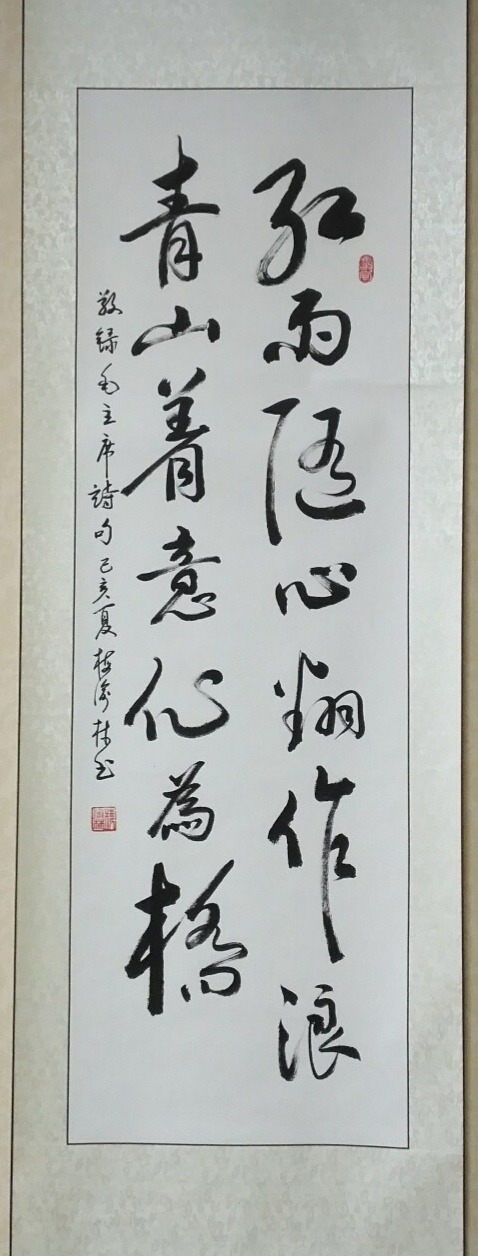 红雨随心翻作浪
青山着意化為橋
敬録毛主席詩句己亥夏 林书